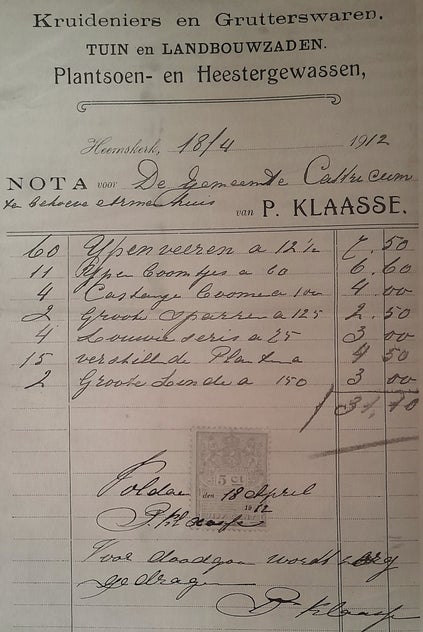 Kruideniers en Grutterswaren.
TUIN en LANDBOUWZADEN.
Plantsoen- en Heestergewassen,
Heemskerk, 18/4 1912
NOTA voor De Gemeente Castricum
ten behoeve armenhuis van P. KLAASSE.
60 Ypen veeren a 12½ 7.50
11 Ypen boomtjes a 60 6.60
4 Castange boomen a 100 4.00
2 Groote sparren a 125 2.50
4 a 75 3 00
15 verschillende Planten a 4 50
2 Groote Linde a 150 3 00
31,10
5 Ct
Voldaan den 18 April
1912
P. Klaasse
Voor doodgaan wordt zorg
gedragen
P. Klaasse